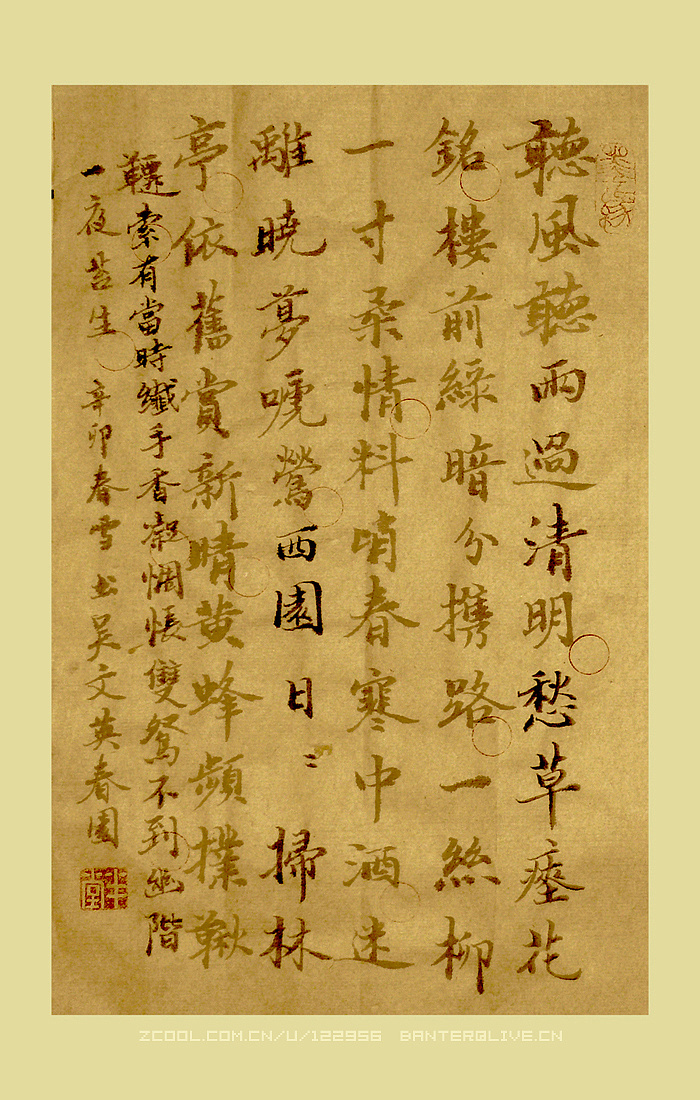 聽風聽雨過清明愁草瘞花
銘樓前綠暗分攜路一絲柳
一寸柔情料峭春寒中酒迷
離曉夢嗁鶯西園日〻掃林
亭依舊賞新晴黄蜂頻撲鞦
韆索有當時纖手香凝惆悵雙鴛不到幽階
一夜苔生 辛卯春雪書吳文英春園
ZCOOL.COM.CN/U/122956 BANTER@LIVE.CN